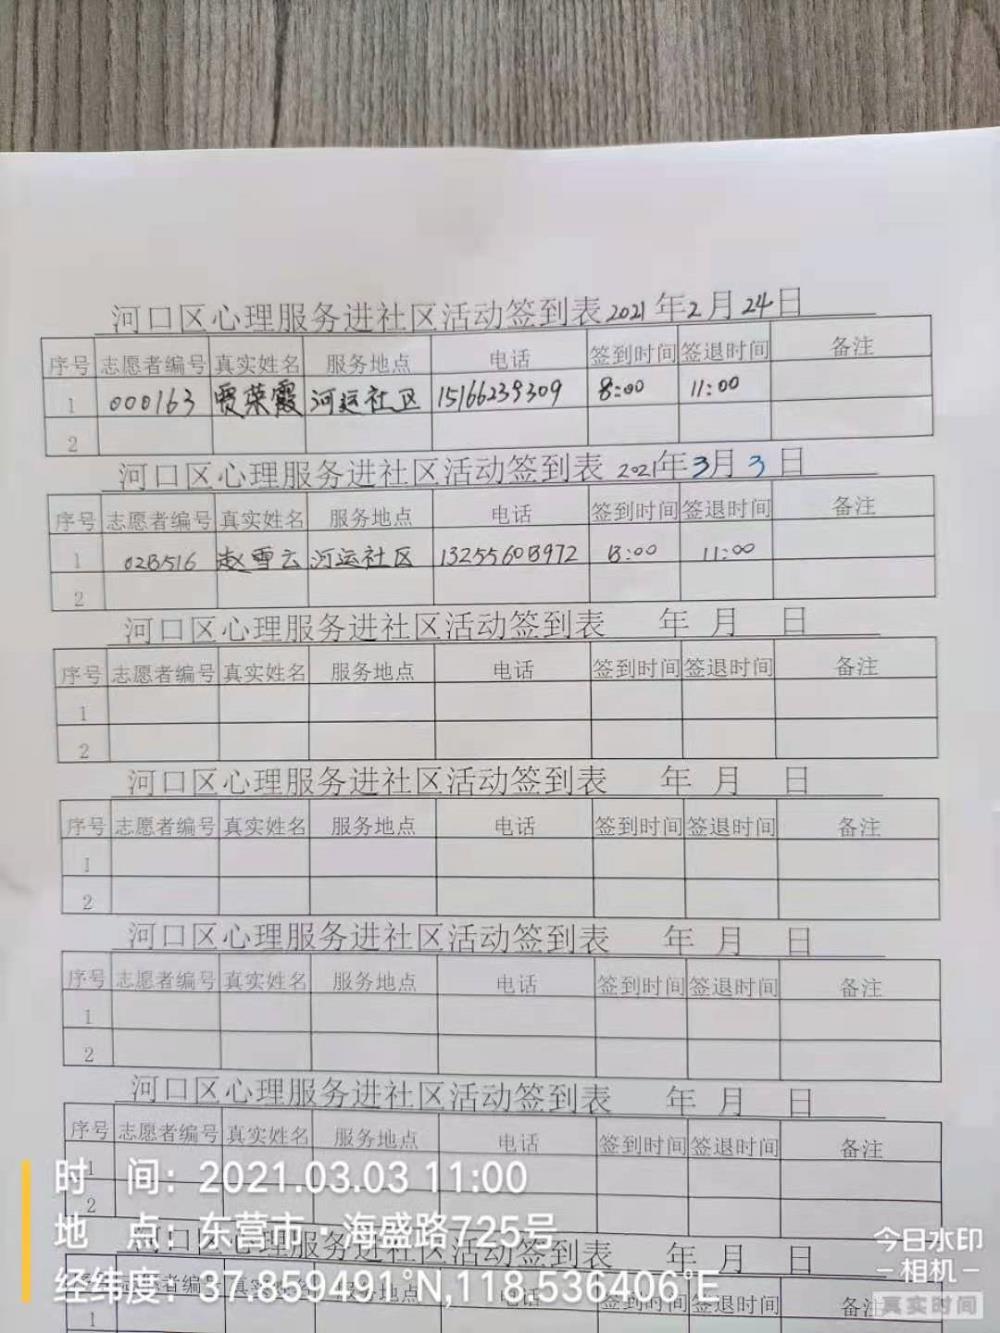 河口区心理服务进社区活动签到表2021年2月24日
序号 志愿者编号 真实姓名 服务地点 电话 签到时间 签退时间 备注
1 000163 贾荣霞 河运社区 15166239309 8:00 11:00
2
河口区心理服务进社区活动签到表 2021年3月3日
序号 志愿者编号 真实姓名 服务地点 电话 签到时间 签退时间 备注
1 028516 赵雪云 河运社区 13255608972 8:00 11:00
2
河口区心理服务进社区活动签到表 年 月 日
序号 志愿者编号 真实姓名 服务地点 电话 签到时间 签退时间 备注
1
2
河口区心理服务进社区活动签到表 年 月 日
序号 志愿者编号 真实姓名 服务地点 电话 签到时间 签退时间 备注
1
2
河口区心理服务进社区活动签到表 年 月 日
序号 志愿者编号 真实姓名 服务地点 电话 签到时间 签退时间 备注
1
2
河口区心理服务进社区活动签到表 年 月 日
序号 志愿者编号 真实姓名 服务地点 电话 签到时间 签退时间 备注
1
时 间：2021.03.03 11:00
2
地 点：东营市·海盛路725号
河口区心理服务进社区活动签到表 年 月 日
今日水印
-相机-
经纬度：37.859491°N,118.536406°E
序号 志愿者编号 真实姓名 服务地点 电话 签到时间 签退时间 备注
真实时间
1